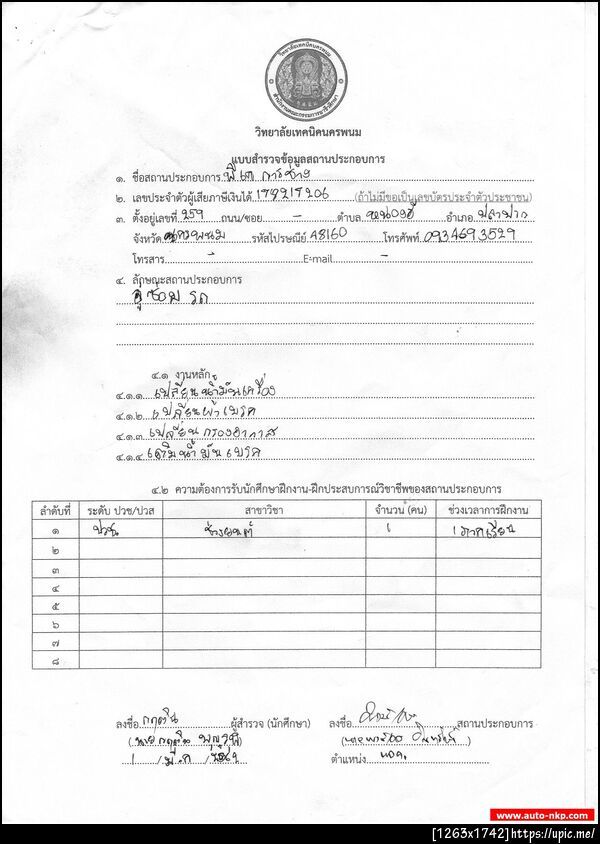 วิทยาลัยเทคนิคนครพนม
สำนักงานคณะกรรมการการอาชีวศึกษา
วิทยาลัยเทคนิคนครพนม
แบบสำรวจข้อมูลสถานประกอบการ
๑. ชื่อสถานประกอบการ พีเค การช่าง
๒. เลขประจำตัวผู้เสียภาษีเงินได้ (ถ้าไม่มีขอเป็นเลขบัตรประจำตัวประชาชน)
๓. ตั้งอยู่เลขที่ 259 ถนน/ซอย - ตำบล หนองฮี อำเภอ ปลาปาก
จังหวัด นครพนม รหัสไปรษณีย์ 48160 โทรศัพท์ 0934693529
โทรสาร - E-mail -
๔. ลักษณะสถานประกอบการ
อู่ซ่อม รถ
๔.๑ งานหลัก
๔.๑.๑ เปลี่ยนน้ำมันเครื่อง
๔.๑.๒ เปลี่ยนผ้าเบรค
๔.๑.๓ เปลี่ยนกรองอากาศ
๔.๑.๔ เติมน้ำมันเบรค
๔.๒ ความต้องการรับนักศึกษาฝึกงาน-ฝึกประสบการณ์วิชาชีพของสถานประกอบการ
ลำดับที่ ระดับ ปวช/ปวส สาขาวิชา จำนวน (คน) ช่วงเวลาการฝึกงาน
๑ ปวช ช่างยนต์ 1 1 ภาคเรียน
๒
๓
๔
๕
๖
๗
๘
ลงชื่อ ผู้สำรวจ (นักศึกษา) ลงชื่อ สถานประกอบการ
ตำแหน่ง
www.auto-nkp.com
[1263x1742]https://upic.me/